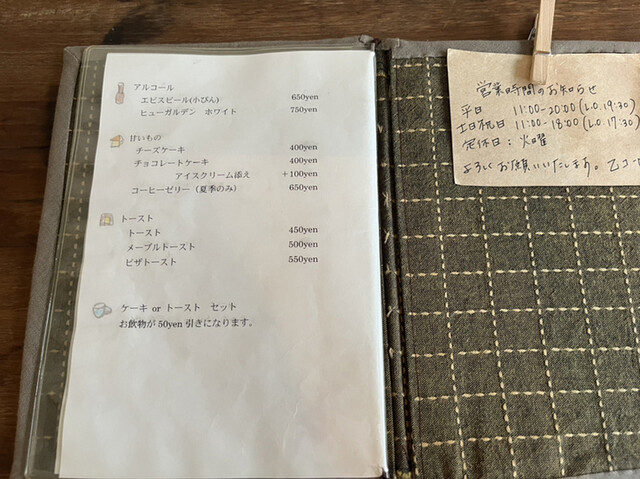 アルコール
エビスビール(小びん) 650yen
ヒューガルデン ホワイト 750yen
甘いもの
チーズケーキ 400yen
チョコレートケーキ 400yen
アイスクリーム添え +100yen
コーヒーゼリー（夏季のみ） 650yen
トースト
トースト +450yen
メープルトースト 500yen
ピザトースト 550yen
ケーキ or トースト セット
お飲物が 50yen 引きになります。
営業時間のお知らせ
平日 11:00-20:00 (L.O.19:30)
土日祝日 11:00-18:00 (L.O.17:30)
定休日: 火曜
よろしくお願いいたします。